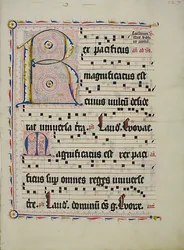 Rex pacificus
magnificatus est
cuius vultū deside
rat universa tra. Laud. Evovae.
Magnificatus est rex paci
ficus sup omnes reges universe
tre. Laud. dominū